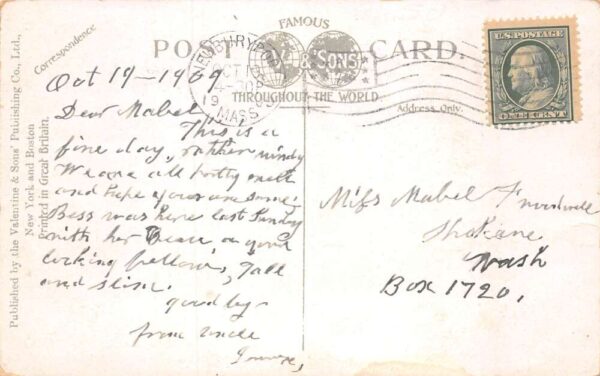 FAMOUS
POST CARD.
& SONS
THROUGHOUT THE WORLD
Correspondence
Address Only.
NEWBURYPORT
OCT 19
MASS
U.S. POSTAGE
ONE CENT
Published by the Valentine & Sons' Publishing Co., Ltd.,
New York and Boston
Printed in Great Britain.
Oct 19-1909
Dear Mabel,
This is a
fine day, rather windy
We are all pretty well
and hope you are same.
Bess was here last Sunday
with her Beau a good
looking fellow, Tall
and slim.
good by
from uncle
Miss Mabel
Spokane
Wash
Box 1720,